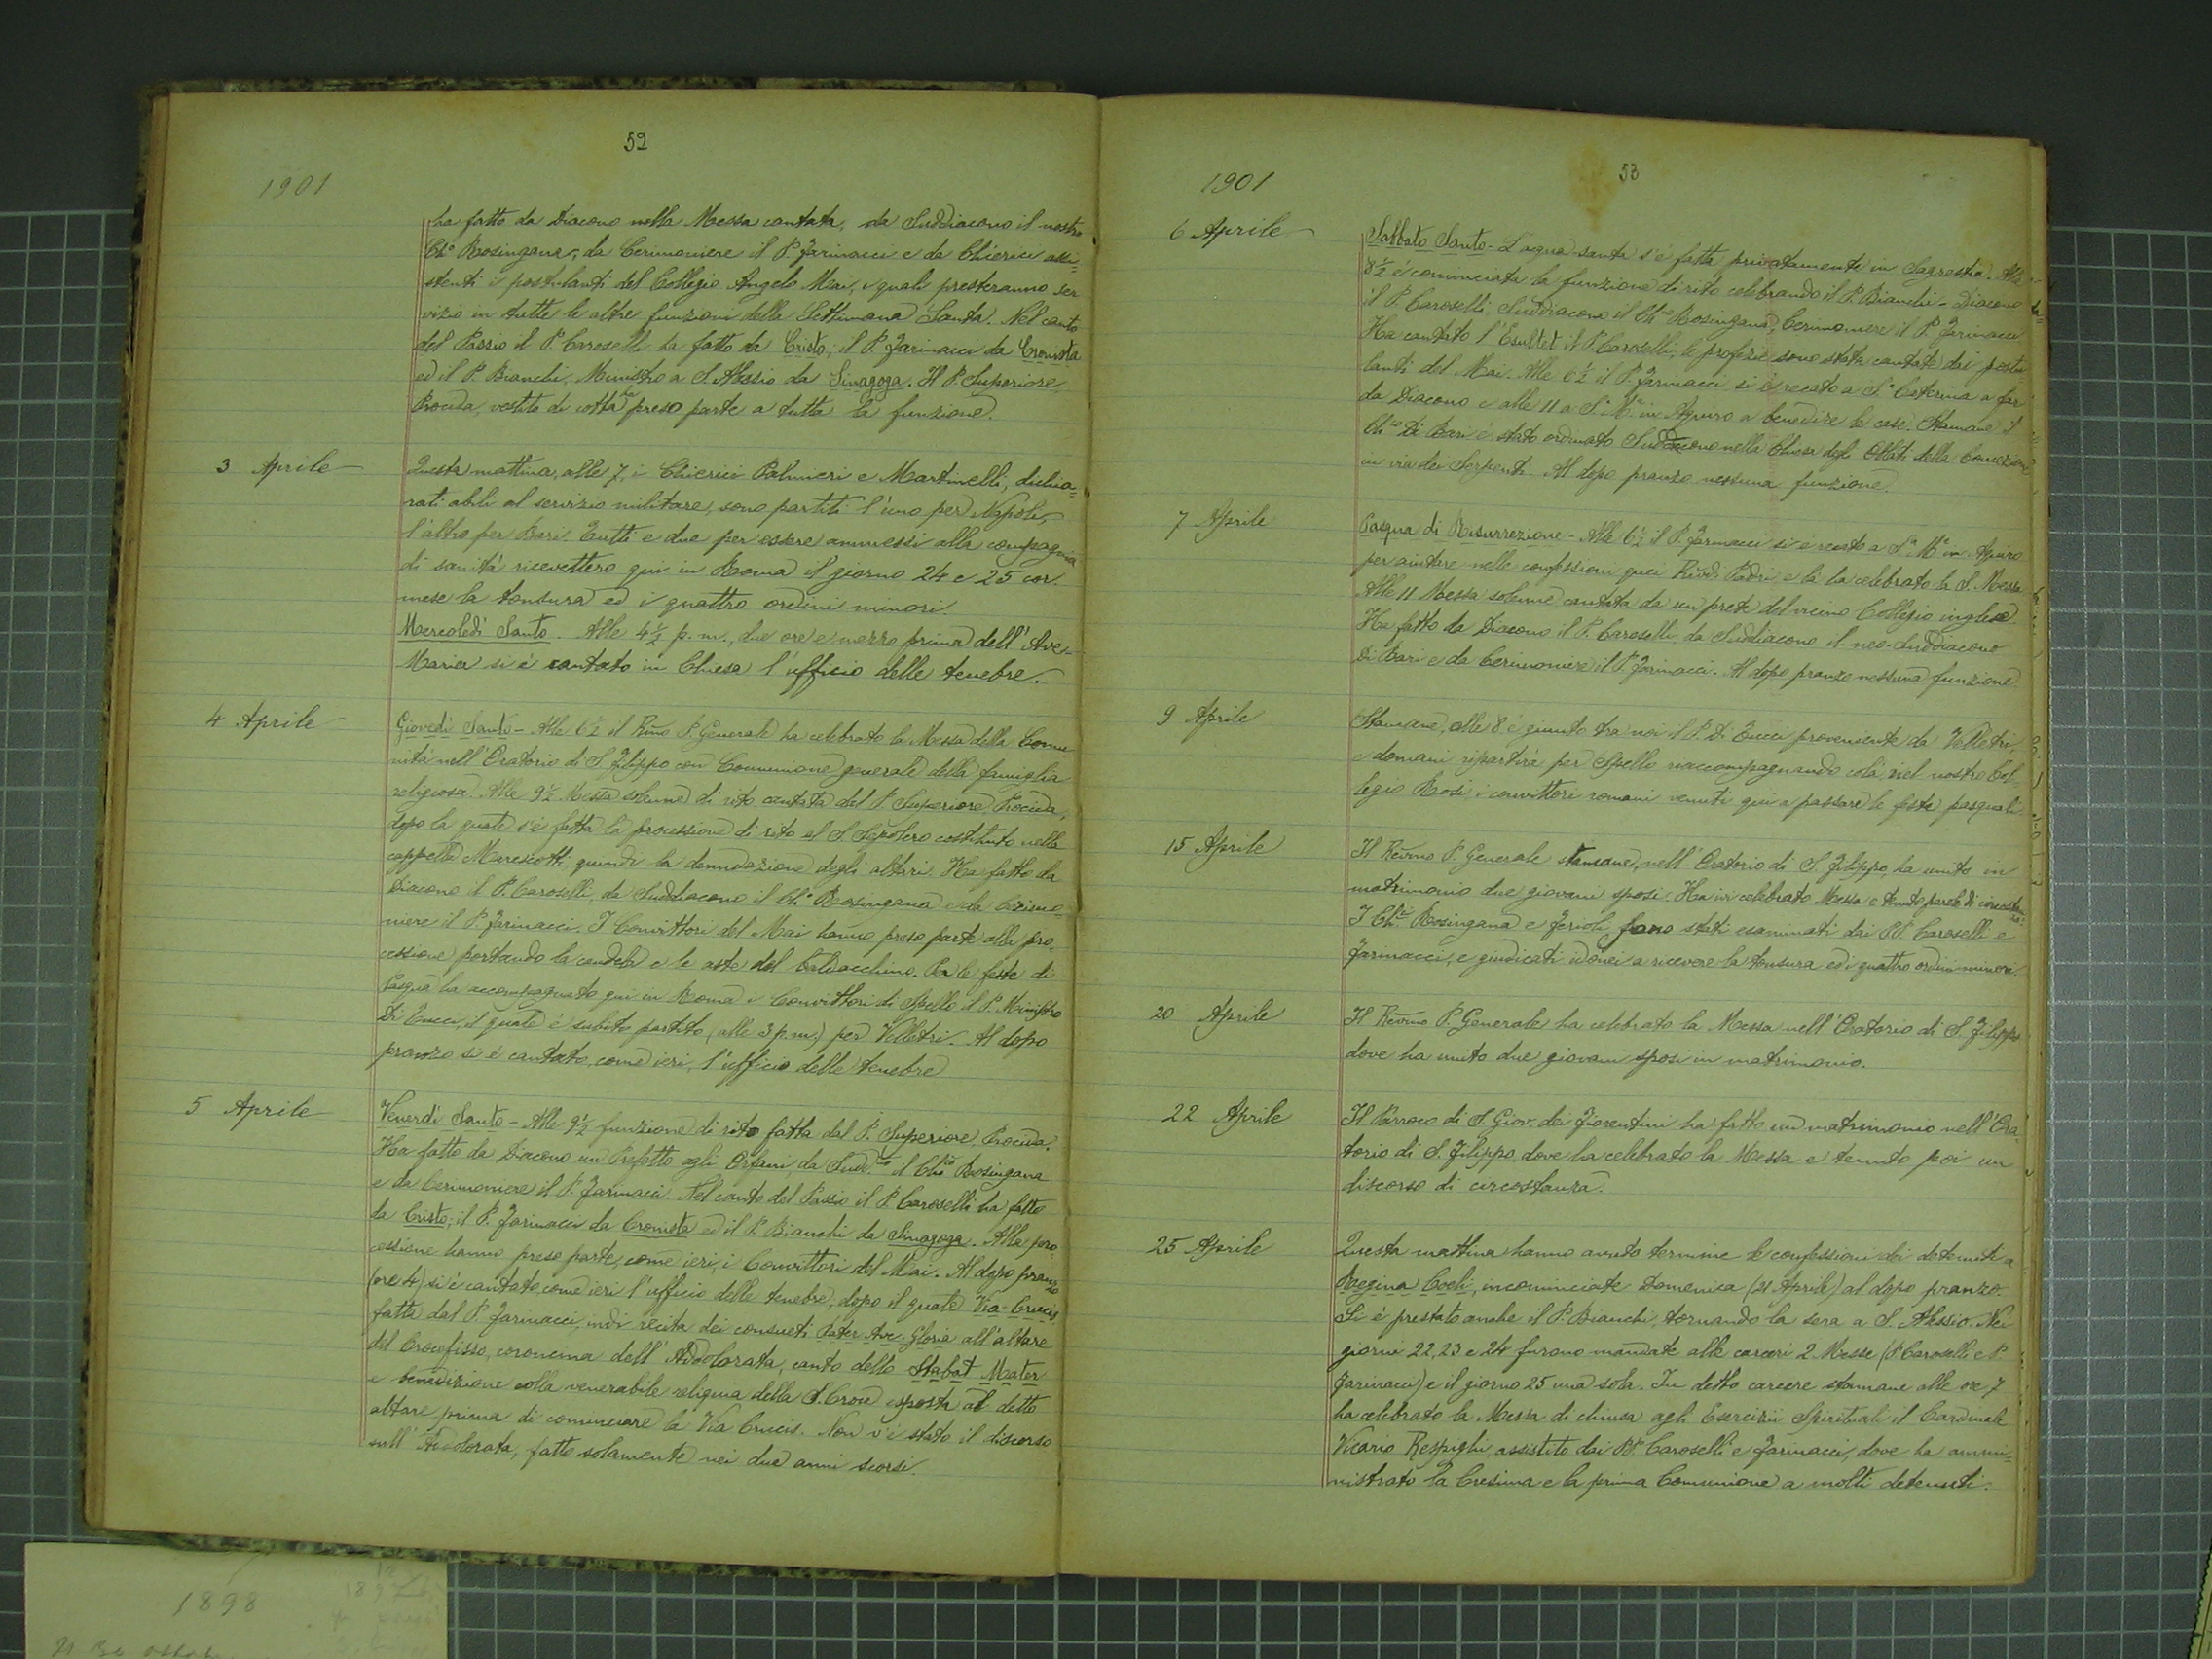 52
1901
ha fatto da Diacono nella Messa cantata, da Suddiacono il nostro
Ch.º Rosingana, da Cerimoniere il P. Zarinacci e da Chierici assi-
stenti i postulanti del Collegio Angelo Mai, i quali presteranno ser
vizio in tutte le altre funzioni della Settimana Santa. Nel canto
del Passio il P. Caroselli ha fatto da Cristo; il P. Zarinacci da Cronista
ed il P. Bianchi, Ministro a S. Alessio da Sinagoga. Il P. Superiore
Procida, vestito di cotta ha preso parte a tutta la funzione.
3 Aprile
Questa mattina, alle 7, i Chierici Palmieri e Martinelli, dichia-
rati abili al servizio militare, sono partiti l'uno per Napoli,
l'altro per Bari. Tutti e due per essere ammessi alla compagnia
di sanità ricevettero qui in Roma il giorno 24 e 25 cor.
mese la tonsura ed i quattro ordini minori.
Mercoledì Santo. Alle 4½ p.m., due ore e mezzo prima dell'Ave-
Maria si è cantato in Chiesa l'ufficio delle tenebre.
4 Aprile
Giovedì Santo - Alle 6½ il Rmo P. Generale ha celebrato la Messa della Comu
nità nell'Oratorio di S. Filippo con Comunione generale della famiglia
religiosa. Alle 9½ Messa solenne di rito cantata dal P. Superiore Procida,
dopo la quale s'è fatta la processione di rito al S. Sepolcro costituito nella
cappella Marescotti quindi la denudazione degli altari. Ha fatto da
Diacono il P. Caroselli, da Suddiacono il Ch.º Rosingana e da Cerimo-
niere il P. Zarinacci. I Convittori del Mai hanno preso parte alla pro-
cessione portando la candela e le aste del baldacchino. Per le feste di
Pasqua ha accompagnato qui in Roma i Convittori di Spello il P. Ministro
Di Tucci, il quale è subito partito (alle 3 p.m.) per Velletri. Al dopo
pranzo si è cantato, come ieri, l'ufficio delle tenebre
5 Aprile
Venerdì Santo - Alle 9½ funzione di rito fatta dal P. Superiore Procida.
Ha fatto da Diacono un Prefetto agli Orfani da Sudd.no il Ch.co Rosingana
e da Cerimoniere il P. Zarinacci. Nel canto del Passio il P. Caroselli ha fatto
da Cristo; il P. Zarinacci da Cronista ed il P. Bianchi da Sinagoga. Alla pro-
cessione hanno preso parte, come ieri, i Convittori del Mai. Al dopo pranzo
(ore 4) si è cantato, come ieri l'ufficio delle tenebre, dopo il quale Via-Crucis
fatta dal P. Zarinacci, indi recita dei consueti Pater Ave. Gloria all'altare
del Crocefisso, coroncina dell'Addolorata, canto dello Stabat Mater
e benedizione colla venerabile reliquia della S. Croce esposta al detto
altare prima di cominciare la Via Crucis. Non v'è stato il discorso
sull'Addolorata, fatto solamente nei due anni scorsi.
53
1901
6 Aprile
Sabbato Santo - L'acqua santa s'è fatta privatamente in Sagrestia. Alle
8½ è cominciata la funzione di rito celebrando il P. Bianchi - Diacono
il P. Caroselli, Suddiacono il Ch.co Rosingana, Cerimoniere il P. Zarinacci.
Ha cantato l'Exultet il P. Caroselli, le profezie sono state cantate dai postu
lanti del Mai. Alle 6½ il P. Zarinacci si è recato a S.ª Caterina a far
da Diacono e alle 11 a S.ª M.ª in Aquiro a benedire le case. Stamane il
Ch.co Di Bari è stato ordinato Suddiacono nella Chiesa degli Oblati della Concezione
in via dei Serpenti. Al dopo pranzo nessuna funzione.
7 Aprile
Pasqua di Risurrezione - Alle 6½ il P. Zarinacci si è recato a S.ª M.ª in Aquiro
per aiutare nelle confessioni quei Rūdi Padri e là ha celebrato la S. Messa
Alle 11 Messa solenne cantata da un prete del vicino Collegio inglese.
Ha fatto da Diacono il P. Caroselli, da Suddiacono il neo-Suddiacono
Di Bari e da Cerimoniere il P. Zarinacci. Al dopo pranzo nessuna funzione.
9 Aprile
Stamane, alle 8 è giunto tra noi il P. Di Tucci proveniente da Velletri,
e domani ripartirà per Spello riaccompagnando colà, nel nostro Col-
legio Rosi, i convittori romani venuti qui a passare le feste pasquali.
15 Aprile
Il Revmo P. Generale stamane, nell'Oratorio di S. Filippo, ha unito in
matrimonio due giovani sposi. Ha ivi celebrato Messa e tenuto parole di circostanza.
I Ch.ci Rosingana e Ferioli sono stati esaminati dai PP. Caroselli e
Zarinacci, e giudicati idonei a ricevere la tonsura ed i quattro ordini minori.
20 Aprile
Il Revmo P. Generale ha celebrato la Messa nell'Oratorio di S. Filippo
dove ha unito due giovani sposi in matrimonio.
22 Aprile
Il Parroco di S. Giov. dei Fiorentini ha fatto un matrimonio nell'Ora-
torio di S. Filippo dove ha celebrato la Messa e tenuto poi un
discorso di circostanza.
25 Aprile
Questa mattina hanno avuto termine le confessioni dei detenuti a
Regina Coeli, incominciate Domenica (21 Aprile) al dopo pranzo.
Si è prestato anche il P. Bianchi, tornando la sera a S. Alessio. Nei
giorni 22, 23 e 24 furono mandate alle carceri 2 Messe (P. Caroselli e P.
Zarinacci) e il giorno 25 una sola. In detto carcere stamane alle ore 7
ha celebrato la Messa di chiusa agli Esercizii Spirituali il Cardinale
Vicario Respighi, assistito dai PP. Caroselli e Zarinacci, dove ha ammi-
nistrato la Cresima e la prima Comunione a molti detenuti.
1898